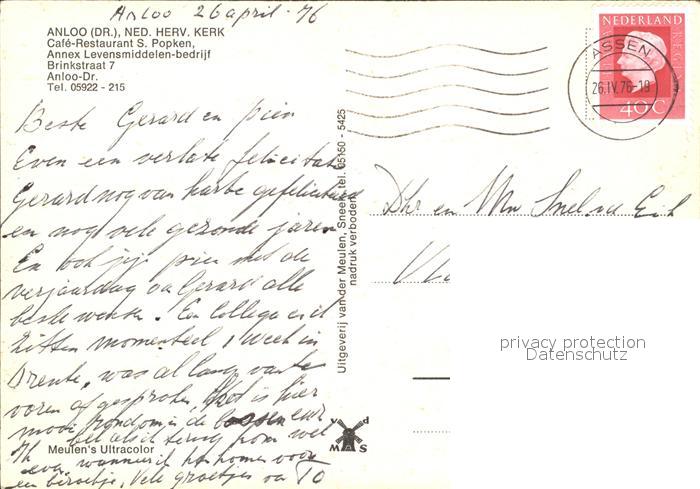 Anloo 26 april - 76
ANLOO (DR.), NED. HERV. KERK
Café-Restaurant S. Popken,
Annex Levensmiddelen-bedrijf
Brinkstraat 7
Anloo-Dr.
Tel. 05922 - 215
Beste Gerard en pien
Even een verlate felicitatie
Gerard nog van harte gefeliciteerd
en nog vele gezonde jaren
En ook jij pien met de
verjaardag van Gerard alle
beste wensen. Een collega en ik
zitten momenteel 1 week in
Drente, was al lang van te
voren afgesproken, Het is hier
mooi rondom in de bossen
Ik bel als ik terug kom wel
even wanneer ik kan komen voor
een borreltje, Vele groetjes van To
Meulen's Ultracolor
Uitgeverij van der Meulen, Sneek, tel. 05150 - 5425
nadruk verboden
v d
M S
NEDERLAND
40 C
ASSEN
26.IV.76-19
Dhr en Mw Snel
privacy protection
Datenschutz